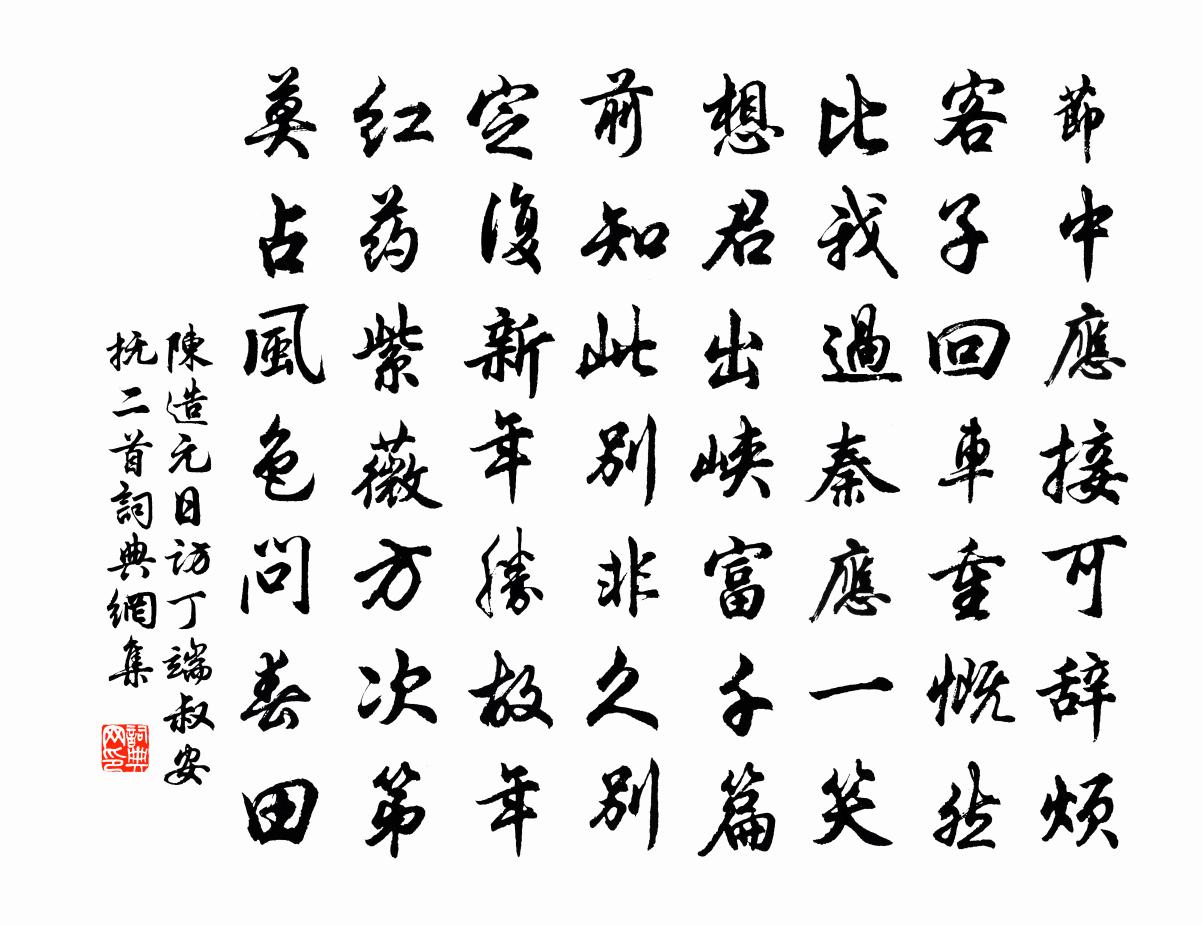 莭中應接可辞烦
客子回車重慨然
比我過秦應一笑
想君出峽富千篇
前知此别非久别
定復新年勝故年
红药紫薇方次第
莫占風色问春田
陳造元日訪丁端叔安
抚二首詞典網集
詞典
网印